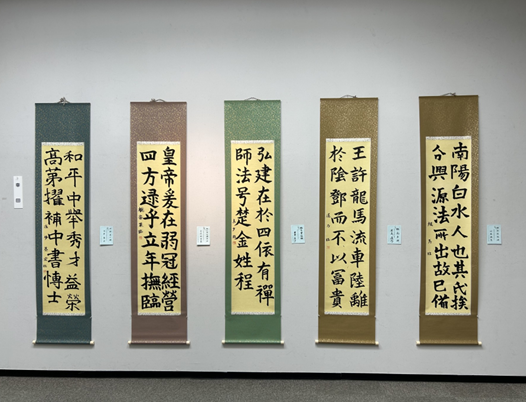 南陽白水人也其氏族
分興源流所出故已備
王許龍馬流車陸離
於陰鄧而不以冨貴
弘建在於四依有禪
師法号楚金姓程
皇帝爰在弱冠經營
四方逮乎立年撫臨
和平中舉秀才荅策
高第擢補中書博士